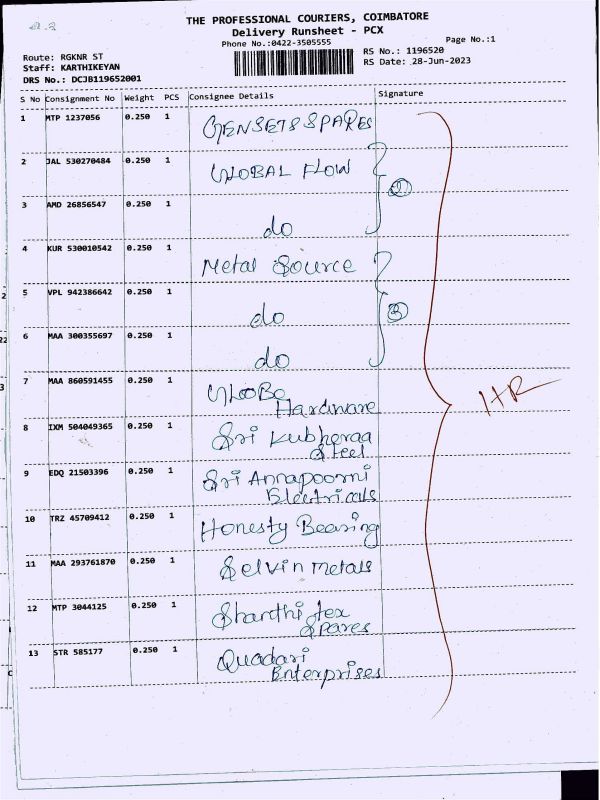 THE PROFESSIONAL COURIERS, COIMBATORE
Delivery Runsheet - PCX
Phone No.:0422-3505555
Page No.:1
Route: RGKNR ST
RS No.: 1196520
Staff: KARTHIKEYAN
RS Date: 28-Jun-2023
DRS No.: DCJB119652001
S No Consignment No Weight PCS Consignee Details Signature
1 MTP 1237056 0.250 1 GENSETS SPARES
2 JAL 530270484 0.250 1 GLOBAL FLOW
2
3 AMD 26856547 0.250 1 do
4 KUR 530010542 0.250 1 Metal Source
5 VPL 942386642 0.250 1 do
3
6 MAA 300355697 0.250 1 do
7 MAA 860591455 0.250 1 GLOBE
Hardware
8 IXM 504049365 0.250 1 Sri Kubheraa
Steel
9 EDQ 21503396 0.250 1 Sri Annapoorni
Electricals
10 TRZ 45709412 0.250 1 Honesty Bearing
11 MAA 293761870 0.250 1 Selvin metals
12 MTP 3044125 0.250 1 Shanthi tex
Spares
13 STR 585177 0.250 1 Quadari
Enterprises